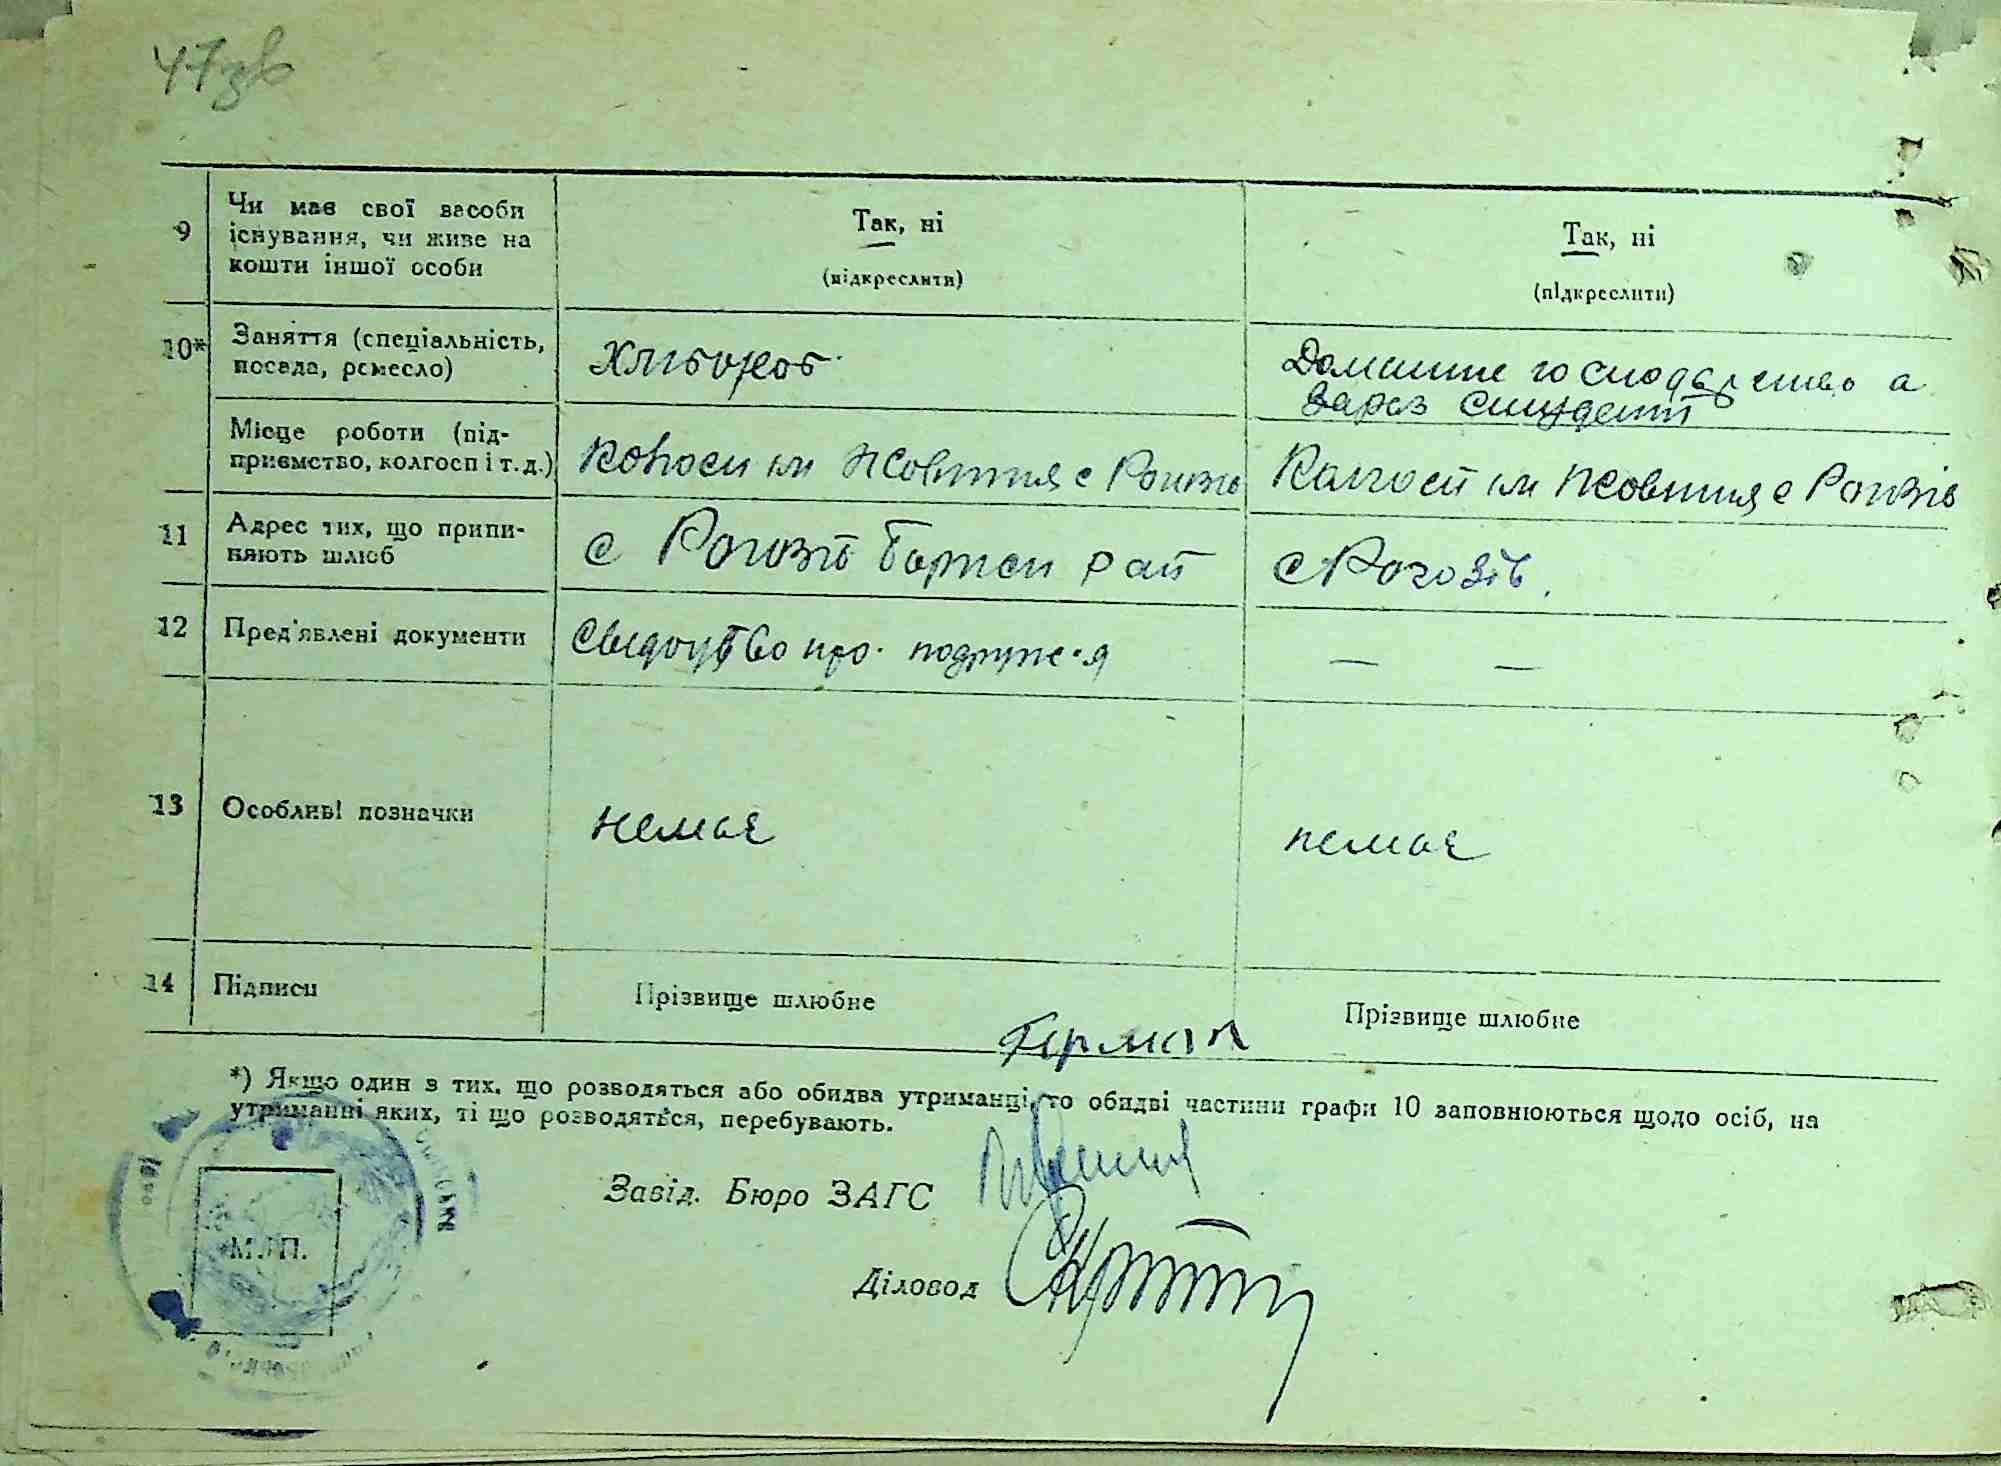 47зв
9 Чи має свої засоби існування, чи живе на кошти іншої особи
Так, ні
(підкреслити)
Так, ні
(підкреслити)
10* Заняття (спеціальність, посада, ремесло)
Хлібороб
Домашнє господарство а зараз студент
Місце роботи (підприємство, колгосп і т.д.)
Жовтня с Рогозів
Колгосп ім Жовтня с Рогозів
11 Адрес тих, що припиняють шлюб
с Рогозів Борисп рай
с Рогозів.
12 Пред'явлені документи
Свідоцтво про подруж·я
— —
13 Особливі позначки
немає
немає
14 Підписи
Прізвище шлюбне
Прізвище шлюбне
*) Якщо один з тих, що розводяться або обидва утриманці, то обидві частини графи 10 заповнюються щодо осіб, на
утриманні яких, ті що розводяться, перебувають.
Завід. Бюро ЗАГС
М. П.
Діловод